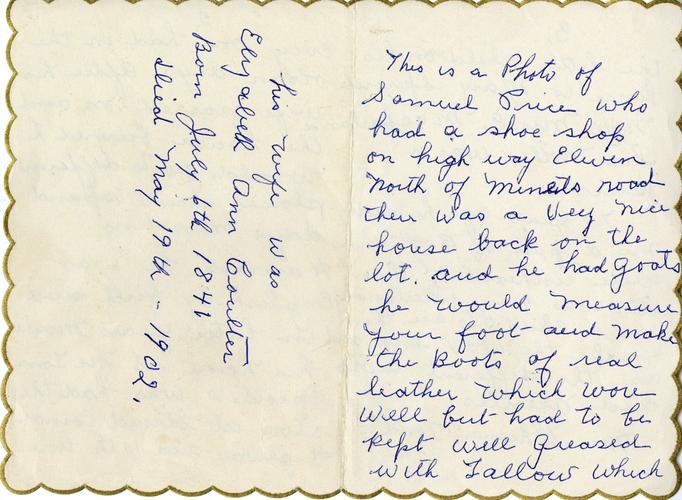 his wife was
Elizabeth Ann Coulter
Born July 6th 1841
died May 19th - 1902.
This is a Photo of
Samuel Price who
had a shoe shop
on high way Eleven
north of Minets road
ther was a Very nice
house back on the
lot. and he had goats
he would measure
your foot and make
the Boots of real
leather which wore
Well but had to be
kept well greased
with Tallow which